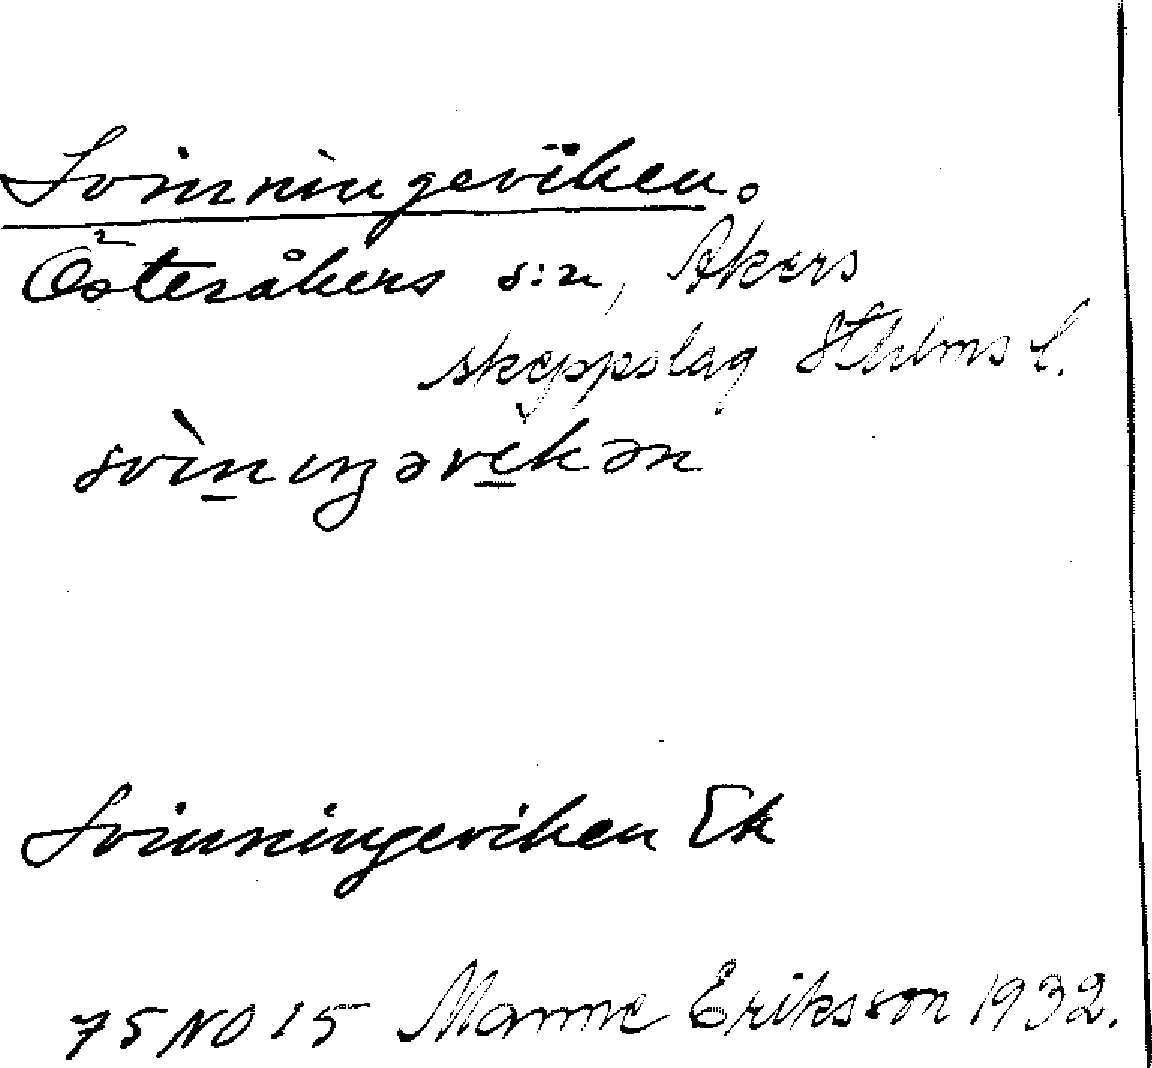 Svinningeviken.
Österåkers s:n, Åkers
skeppslag Sthlms l.
svìnıŋəvikən
Svinningeviken Ek
75 NO 15 Manne Eriksson 1932.